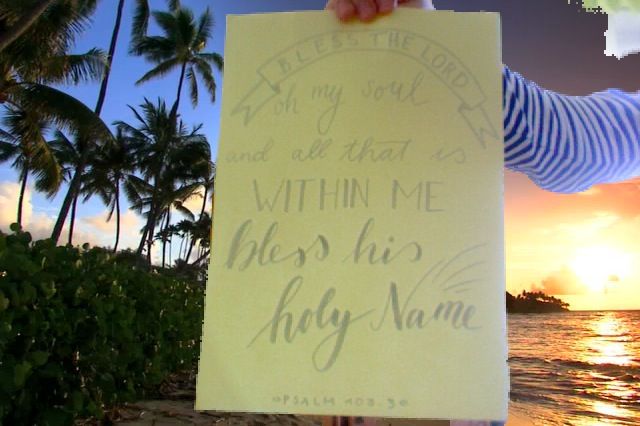 BLESS THE LORD
oh my soul
and all that is
WITHIN ME
bless his
holy Name
PSALM 103.30